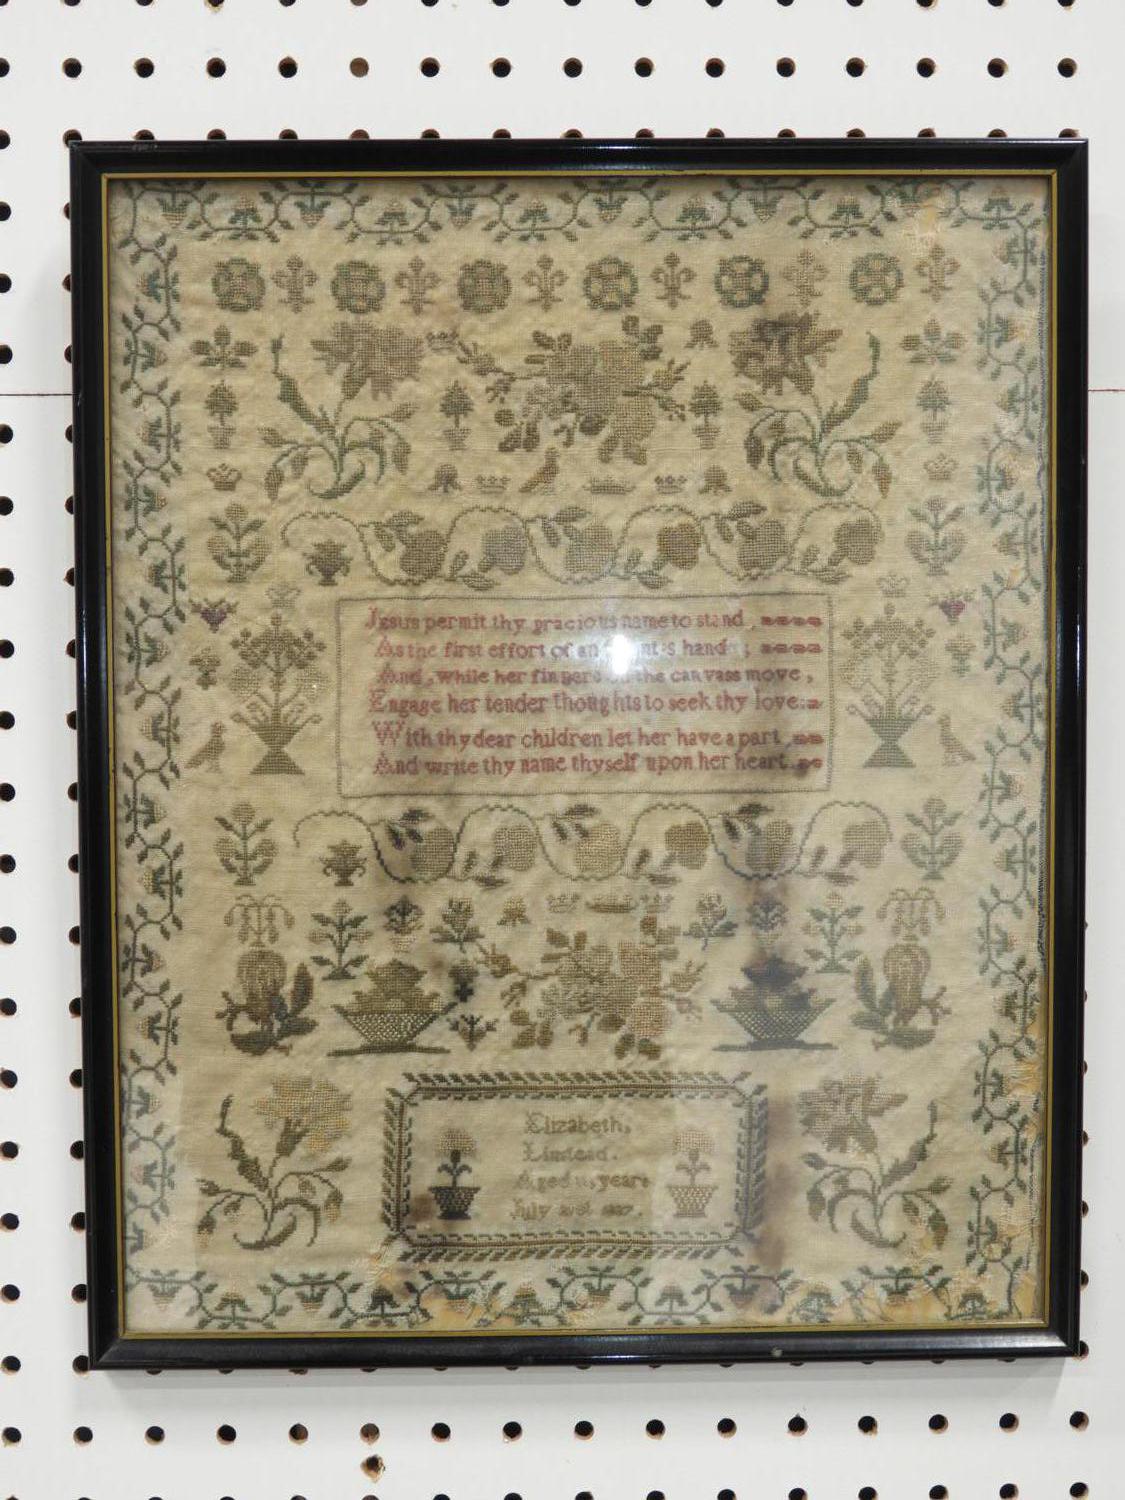 Jesus permit thy gracious name to stand,
As the first effort of an hand;
And, while her fingers the canvass move,
Engage her tender thoughts to seek thy love:
With thy dear children let her have a part,
And write thy name thyself upon her heart.
Elizabeth,
Linstead.
Aged 11, years
July